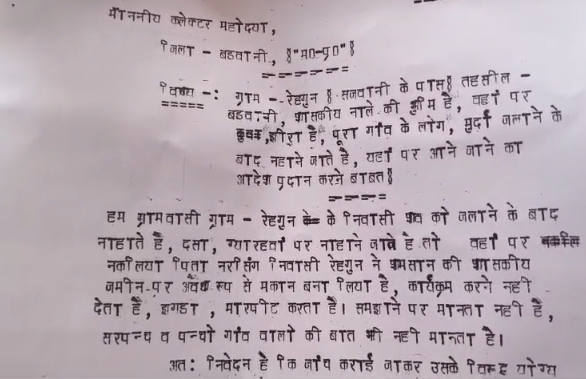 माननीय कलेक्टर महोदया,
जिला - बडवानी, §"म0-प्र0"§
विषय -: ग्राम - रेहगुन § सजवानी के पास§ तहसील -
बडवानी, शासकीय नाले की भूमि है, वहां पर
झीरा है, पूरा गांव के लोग, मुर्दा जलाने के
बाद नहाने जाते है, यहां पर आने जाने का
आदेश प्रदान करने बाबत§
हम ग्रामवासी ग्राम - रेहगुन के निवासी शव को जलाने के बाद
नाहाते है, दसा, ग्यारहवां पर नाहाने जाते है तो वहां पर
नकलिया पिता नरसिंग निवासी रेहगुन ने शमसान की शासकीय
जमीन-पर अवैध रूप से मकान बना लिया है, कार्यक्रम करने नही
देता है, झगडा , मारपीट करता है। समझाने पर मानता नही है,
सरपन्च व पन्चो गांव वालो की बात भी नही मानता है।
अत: निवेदन है कि जांच कराई जाकर उसके विरूद्ध योग्य